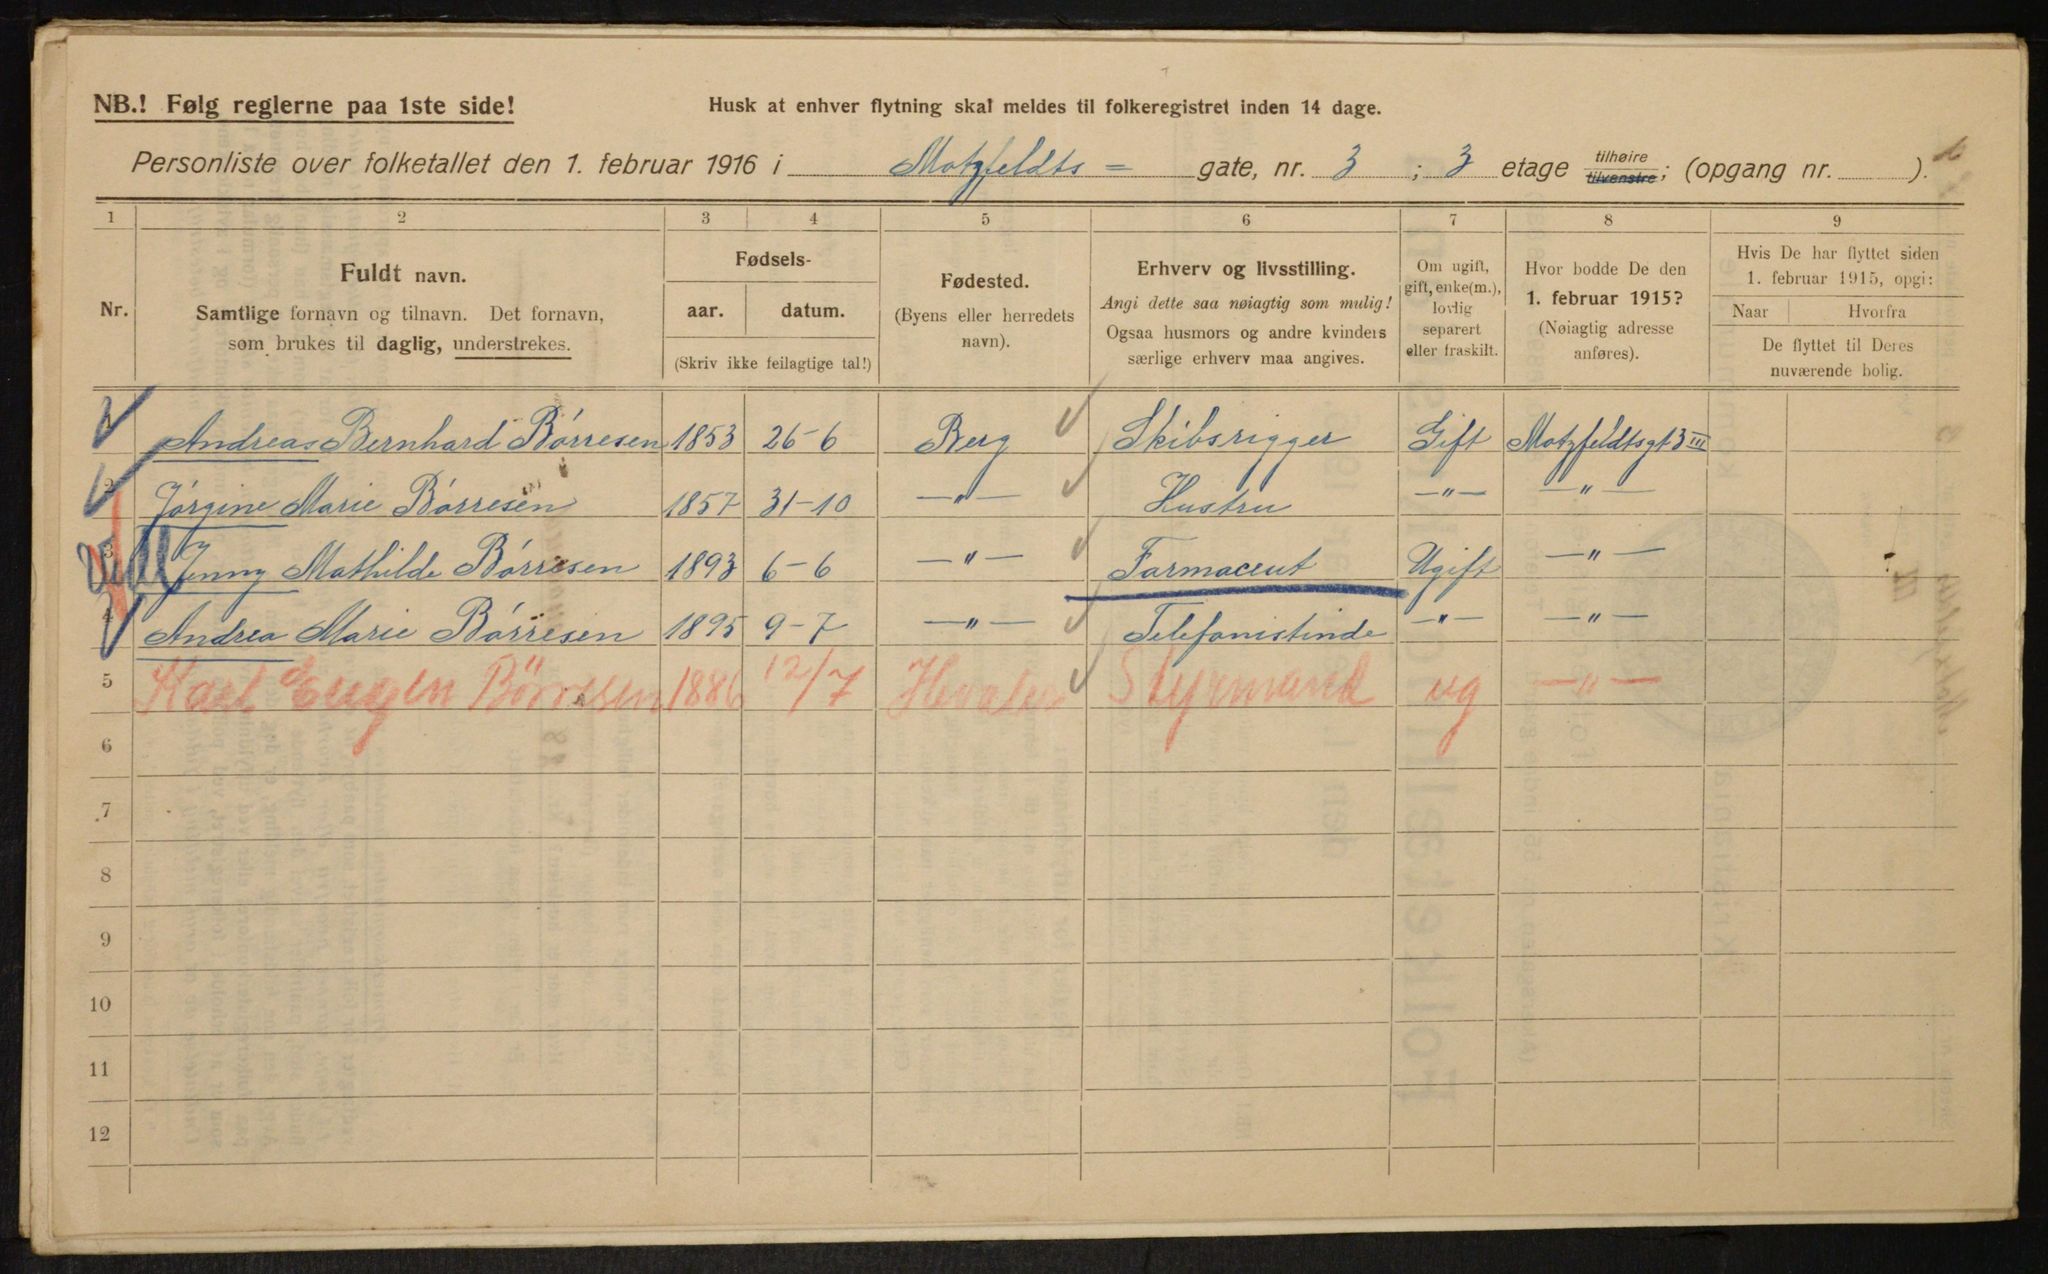 NB.! Følg reglerne paa 1ste side!
Husk at enhver flytning skal meldes til folkeregistret inden 14 dage.
Personliste over folketallet den 1. februar 1916 i Motzfeldts = gate, nr. 3 ; 3 etage tilhøire tilvenstre; (opgang nr. ).
1 2 3 4 5 6 7 8 9
Nr.
Fuldt navn.
Samtlige fornavn og tilnavn. Det fornavn,
som brukes til daglig, understrekes.
Fødsels-
aar. datum.
(Skriv ikke feilagtige tal!)
Fødested.
(Byens eller herredets
navn).
Erhverv og livsstilling.
Angi dette saa nøiagtig som mulig!
Ogsaa husmors og andre kvinders
særlige erhverv maa angives.
Om ugift,
gift, enke(m.),
lovlig
separert
eller fraskilt.
Hvor bodde De den
1. februar 1915?
(Nøiagtig adresse
anføres).
Hvis De har flyttet siden
1. februar 1915, opgi:
Naar Hvorfra
De flyttet til Deres
nuværende bolig.
Andreas Bernhard Börresen 1853 26-6 Berg Skibsrigger Gift Motzfeldtsgt 3 III
2 Jörgine Marie Börresen 1857 31-10 —"— Hustru —"— —"—
3 Jenny Mathilde Börresen 1893 6-6 —"— Farmaceut Ugift —"—
4 Andrea Marie Börresen 1895 9-7 —"— Telefonistinde —"— —"—
5 Karl Eugen Börresen 1886 12/7 Hvaler Styrmand ug —"—
6
7
8
9
10
11
12